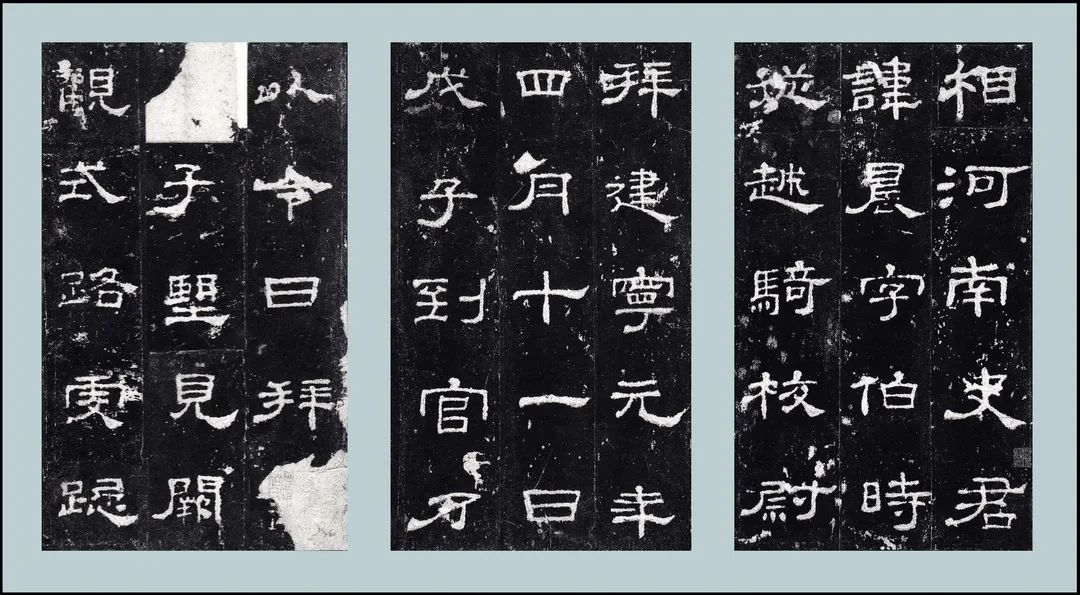 相河南史君
諱晨字伯時
從越騎校尉
拜建寧元年
四月十一日
戊子到官乃
以令日拜
子望見闕
觀式路虔跽